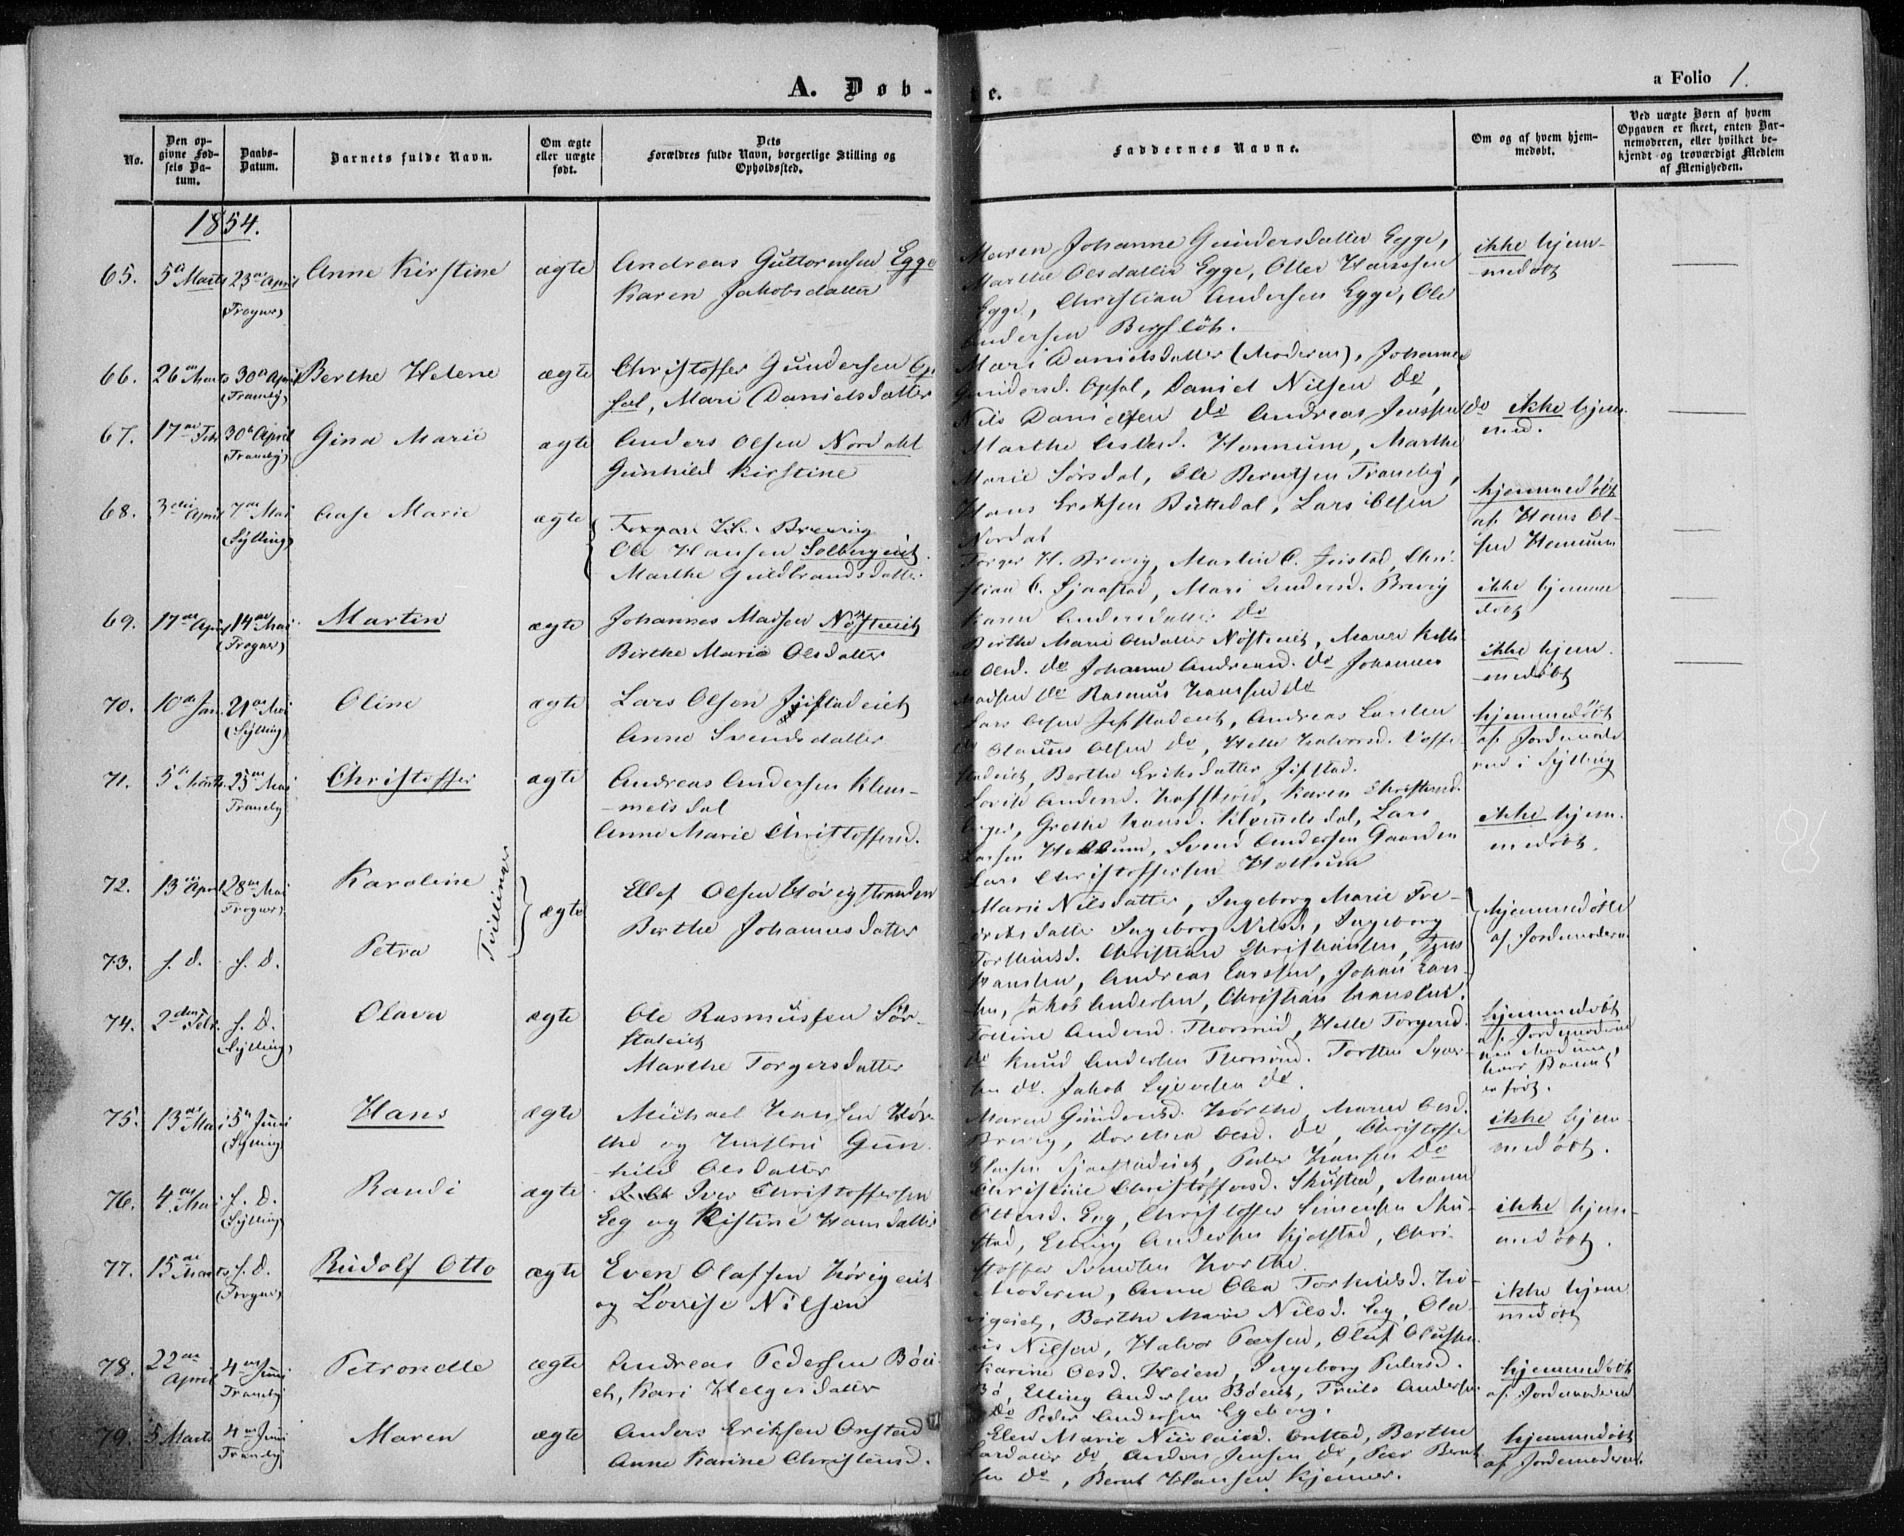 A. Døb-
te.
a Folio 1.
No.
Den op-
givne Fød-
sels Da-
tum.
Daabs-
Datum.
Barnets fulde Navn.
Om ægte
eller uægte
født.
Dets
Forældres fulde Navn, borgerlige Stilling og
Opholdssted.
Faddernes Navne.
Om og af hvem hjem-
medøbt.
Ved uægte Børn af hvem
Opgaven er skeet, enten Bar-
nemoderen, eller hvilket be-
kjendt og troværdigt Medlem
af Menigheden.
1854.
65. 5te Marts 23de April Anne Kirstine ægte Andreas Guttormsen Egge
(Frogner) Karen Jakobsdatter
Maren Johanne Gundersdatter Egge,
Marthe Olsdatter Egge, Otter Hanssen
Egge, Christian Andersen Egge, Ole
Andersen Bergfløt.
ikke hjem-
medøbt
66. 26de Marts 30te April Berthe Helene ægte Christoffer Gundersen Op-
(Tranby) sal, Mari Danielsdatter
Mari Danielsdatter (Moderen), Johanne
Gundersd. Opsal, Daniel Nilsen do,
Nils Danielsen do Andreas Jenssen do
ikke hjem-
med.
67. 17de Febr 30te April Gina Marie ægte Anders Olsen Nordahl
(Tranby) Gunhild Kirstine
Marthe Hennum, Marthe
Marie Sørsdal, Ole Berntsen Tranby,
Hans Eriksen Buttedal, Lars Olsen
Nordal
hjemmedøbt
af Hans Ol-
sen Hennum
68. 3die April 7de Mai Aase Marie ægte Torger H. Brevig
(Sylling) Ole Hansen Solbergeiet
Marthe Guldbrandsdatter
Torger H. Brevig, Martin C. Chri-
stian C. Sjaastad, Mari Andersd. Brevig
Karen Andersdatter do
ikke hjemme
døbt
69. 17de April 14de Mai Martin ægte Johannes Madsen Nøsteeiet
(Frogner) Birthe Marie Olsdatter
Birthe Marie Olsdatter Nøsteeiet, Maren
Olsd. do Johanne Andreasd. do Johannes
Madsen do Rasmus Hanssen do
ikke hjem-
medøbt
70. 10de Jan. 21de Mai Oline ægte Lars Olsen Jifstadeiet
(Sylling) Anne Svendsdatter
Lars Olsen Jifstadeiet, Andreas Larsen
do Olaus Olsen do, Helle Halvorsd.
Berthe Eriksdatter Jifstad.
hjemmedøbt
af Jordemode-
ren i Sylling
71. 5te Marts 25de Mai Christoffer ægte Andreas Andersen Klem-
Tranby metsdal
Anne Marie Christoffersd.
Andersd. Karen Christensd.
Grethe Hansd. Klemmetsdal, Lars
Larsen Hellum, Svend Andersen Gaarden
Lars Christoffersen Hellum
ikke hjem-
medøbt.
72. 13de April 28de Mai Karoline ægte Ellef Olsen Hørigstranden
(Frogner) Berthe Johannesdatter
73. s. d. s. d. Petra
Tvillinger
Marie Nilsdatter, Ingeborg Marie Fre-
driksdatter Ingeborg Nilsd, Ingeborg
Torstensd. Christian Christiansen, Jens
Hansen, Andreas Larssen, Johan Lars-
sen, Jakob Andersen, Christian Hanssen.
hjemmedøbte
af Jordemoderen
74. 2den Febr. s. d. Olava ægte Ole Rasmussen Sør-
(Sylling) stadeiet
Marthe Torgersdatter
Andersd. Thorsrud, Helle Torgersd.
do Knud Andersen Thorsrud. Torsten Syver-
sen do. Jakob Syversen do.
hjemmedøbt
af Jordemoderen
hvor Barnet
er født.
75. 13de Mai 5te Juni Hans ægte Michael Hansen Hør-
(Sylling) the og Hustru Gun-
hild Olsdatter
Maren Gundersd. Hørthe, Maren Olsd.
Brevig, Dorthea Olsd. do, Christoffer
Sjaastadeiet, Peder Hansen do
ikke hjem-
medøbt.
76. 4de Mai s. d. Randi ægte Iver Christoffersen
(Sylling) Eeg og Kistine Hansdatter
Christine Christoffersd. Skustad, Maren
Ottersd. Eeg, Christoffer Simensen Sku-
stad, Elling Andersen Kjolstad, Chri-
stoffer Svendsen Horthe.
ikke hjem-
medøbt.
77. 15de Marts s. d. Rudolf Otto ægte Even Olafsen Hørigeiet
(Frogner) og Lovise Nilsen
Moderen, Anne Olea Torkildsd. Hø-
rigeiet, Berthe Marie Nilsd. Eeg, Ola-
us Nilsen, Halvor Paersen, Oluf Olufsen
ikke hjem
medøbt
78. 22de April 4de Juni Petronelle ægte Andreas Pedersen Böei-
Tranby et, Kari Helgesdatter
Karine Olsd. Heien, Ingeborg Pedersd.
Bö, Elling Andersen Böeiet, Truls Andersen
do Peder Andersen Egeberg.
hjemmedøbt
af Jordemoderen
79. 5 Marts 4de Juni Maren ægte Anders Eriksen Onstad
Tranby Anne Karine Christensd.
Elen Marie Nicolaisd. Onstad, Berthe
Larsdatter do Anders Jensen do, Peer Bernt-
sen do, Bernt Hansen Kjenner.
hjemmedøbt
af Jordemoderen.